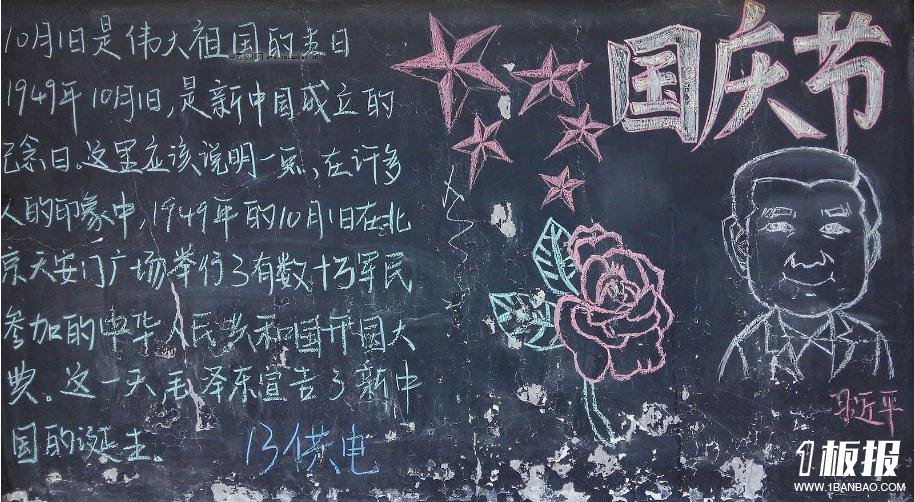 国庆节
10月1日是伟大祖国的生日
1949年10月1日,是新中国成立的
纪念日。这里应该说明一点,在许多
人的印象中,1949年的10月1日在北
京天安门广场举行了有数十万军民
参加的中华人民共和国开国大
典。这一天毛泽东宣告了新中
国的诞生。
13供电
习近平
1板报
WWW.1BANBAO.COM